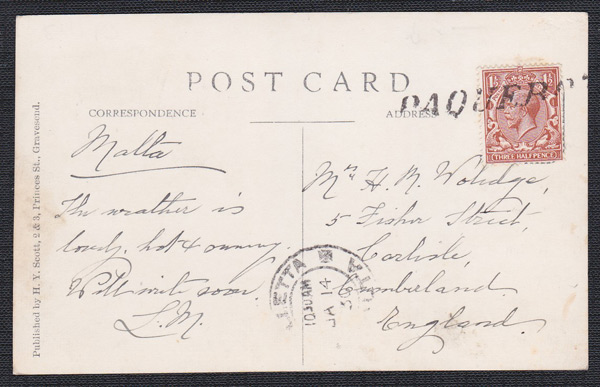 POST CARD
CORRESPONDENCE
ADDRESS
PAQUEBOT
1½ 1½
THREE HALFPENCE
Malta
The weather is
lovely, hot & sunny.
Will write soon.
L.M.
Mrs H. R.
5 Fisher Street,
Carlisle,
Cumberland.
England.
VALLETTA
1030AM
JA 14
30
Published by H. Y. Scott, 2 & 3, Princes St., Gravesend.